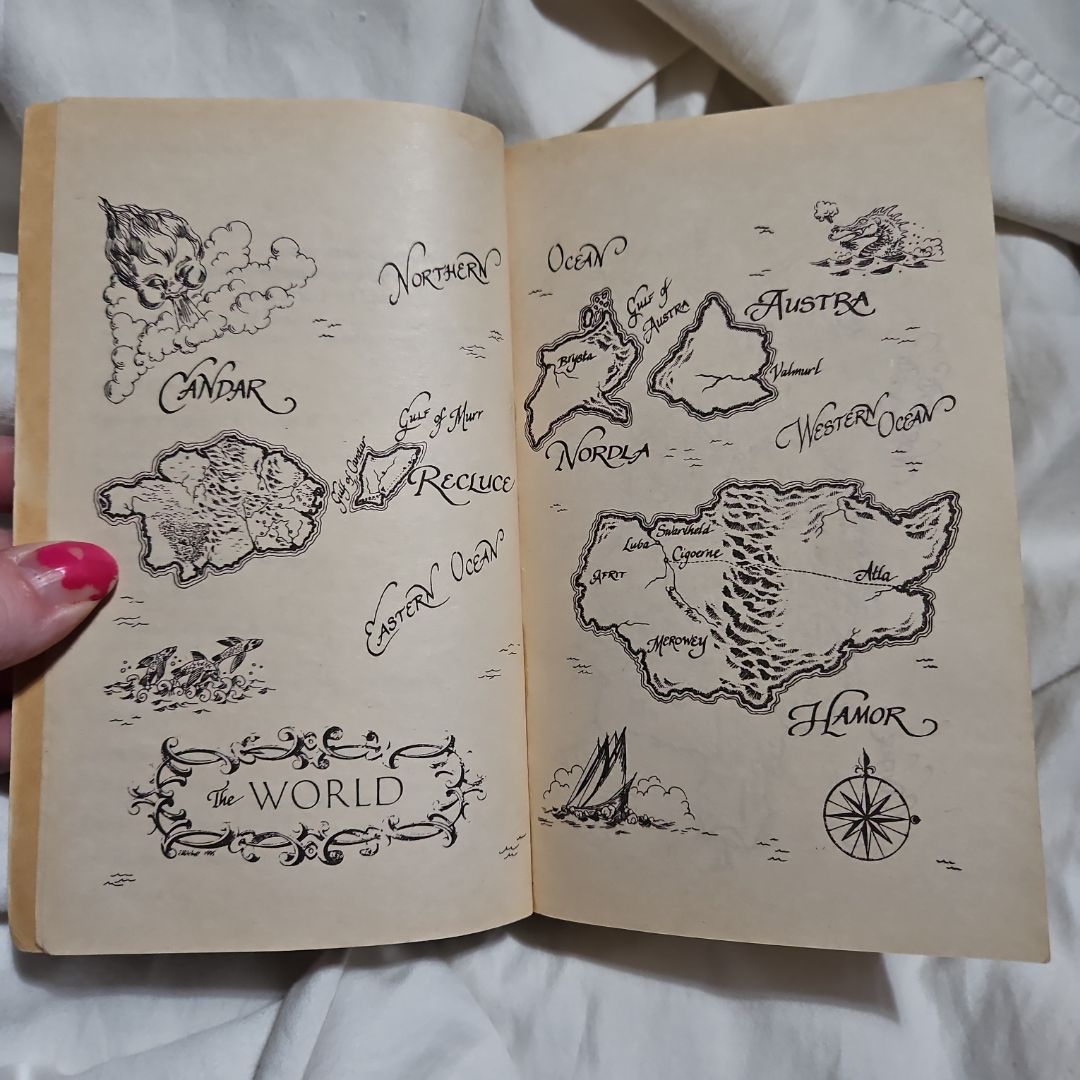 NORTHERN
CANDAR
GULF of MURR
Gulf of Candar
RECLUCE
EASTERN OCEAN
The WORLD
OCEAN
GULF of
AUSTRA
AUSTRA
Brysta
Valmurl
NORDLA
WESTERN OCEAN
Swartheld
Luba
Cigoerne
AFRIT
Atla
MEROWEY
HAMOR